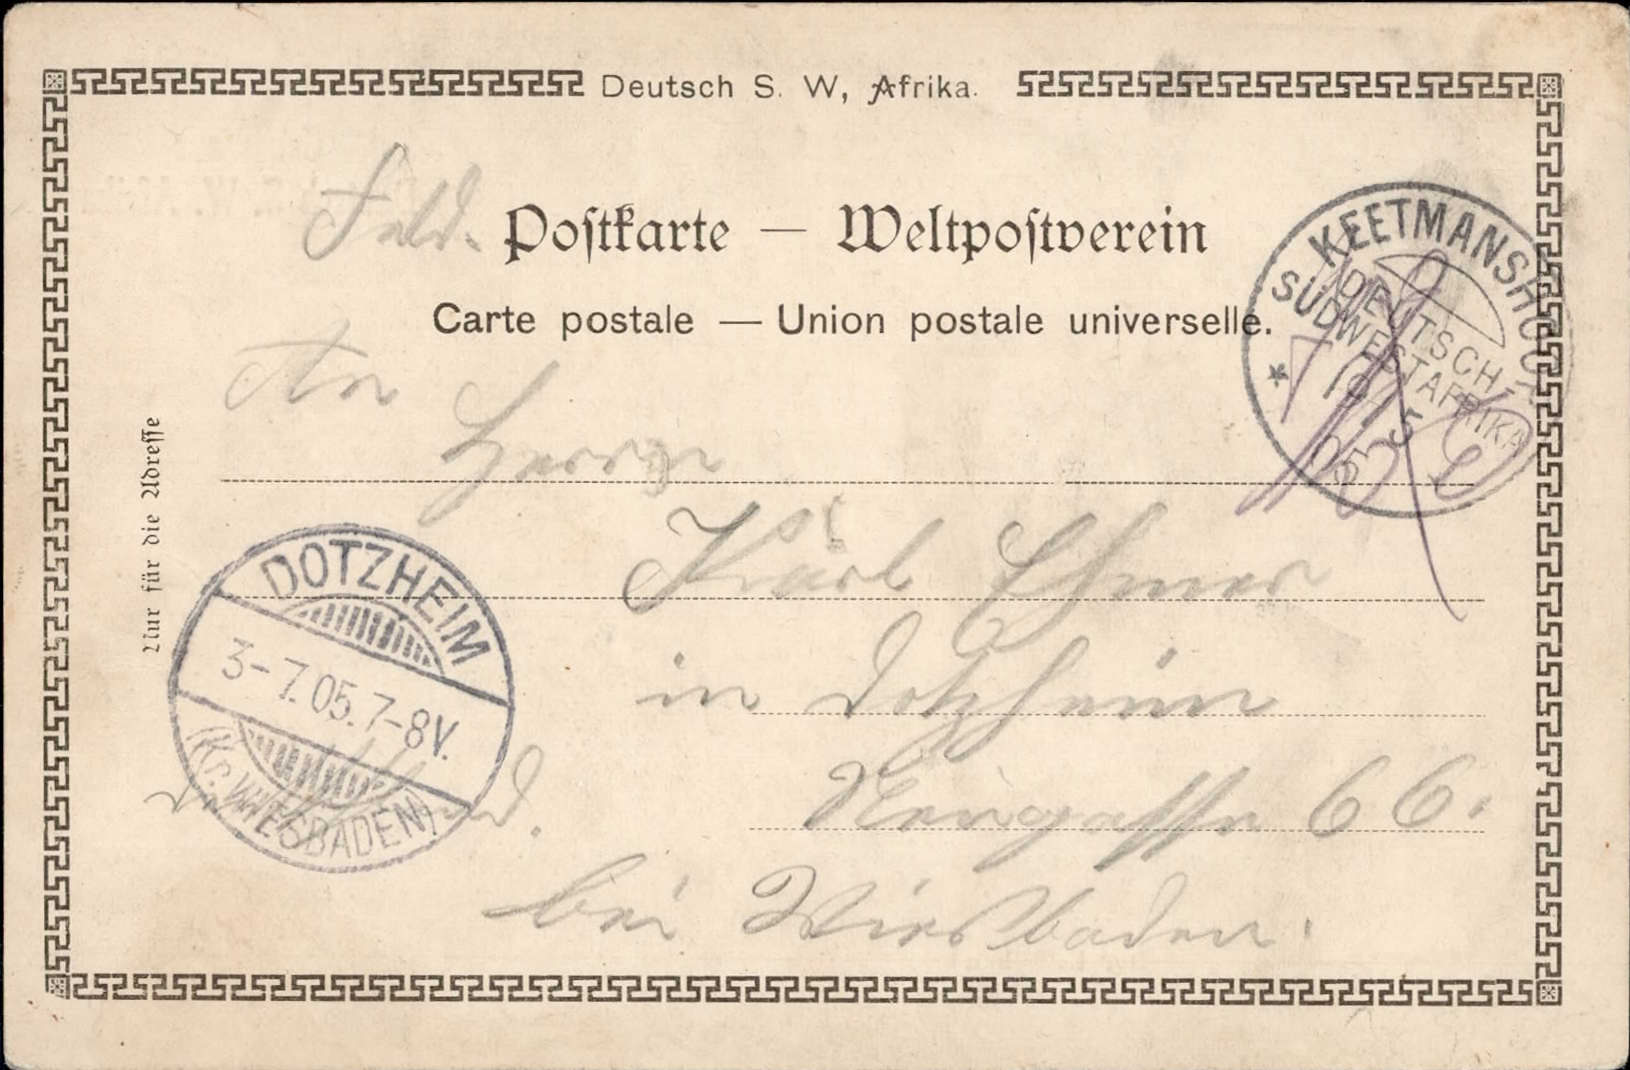 Deutsch S. W, Afrika.
Feld. Postkarte — Weltpostverein
Carte postale — Union postale universelle.
KEETMANSHOOP
DEUTSCH-
SÜDWESTAFRIKA
An
Herrn
Karl
in Dotzheim
Neugasse 66.
bei Wiesbaden.
Nur für die Adresse
DOTZHEIM
3-7.05.7-8V.
(Kr. WIESBADEN)